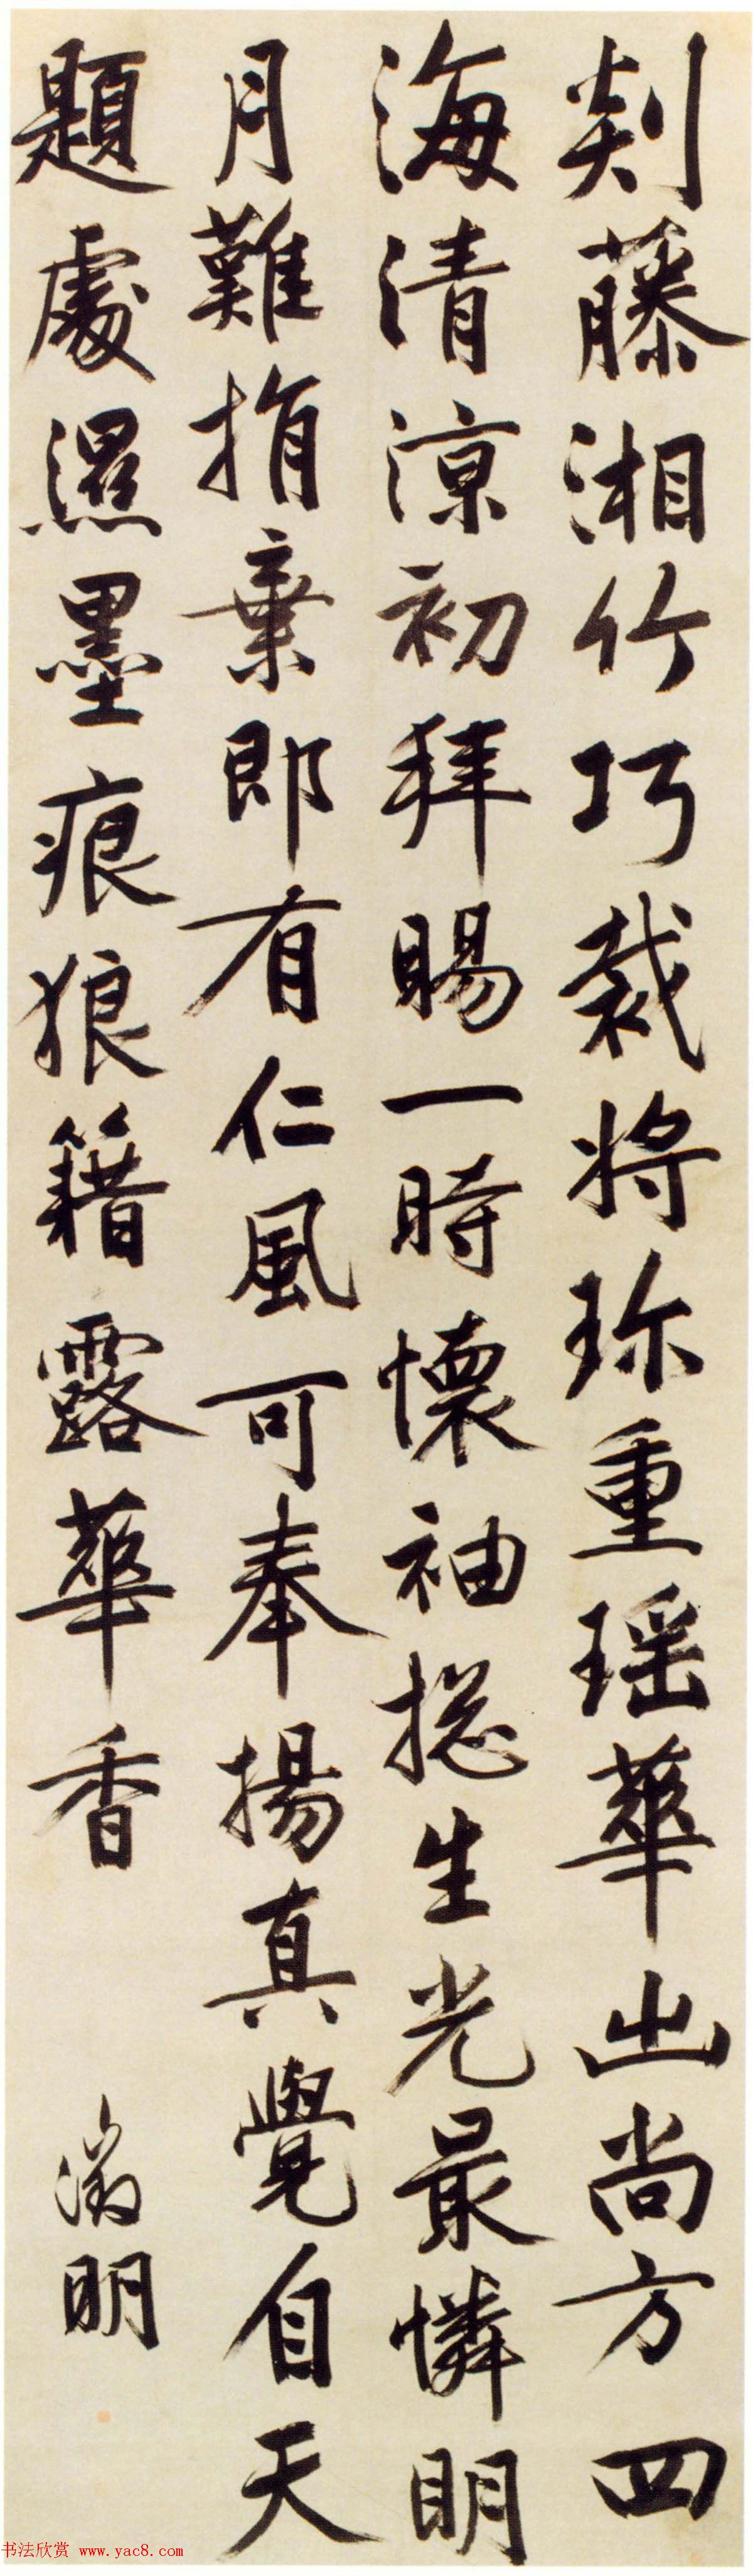 剡藤湘竹巧裁将珎重瑶華出尚方四
海清涼初拜賜一時懷袖捴生光最憐明
月難捐棄即有仁風可奉揚真覺自天
題處濕墨痕狼籍露華香
徵明
书法欣赏 www.yac8.com